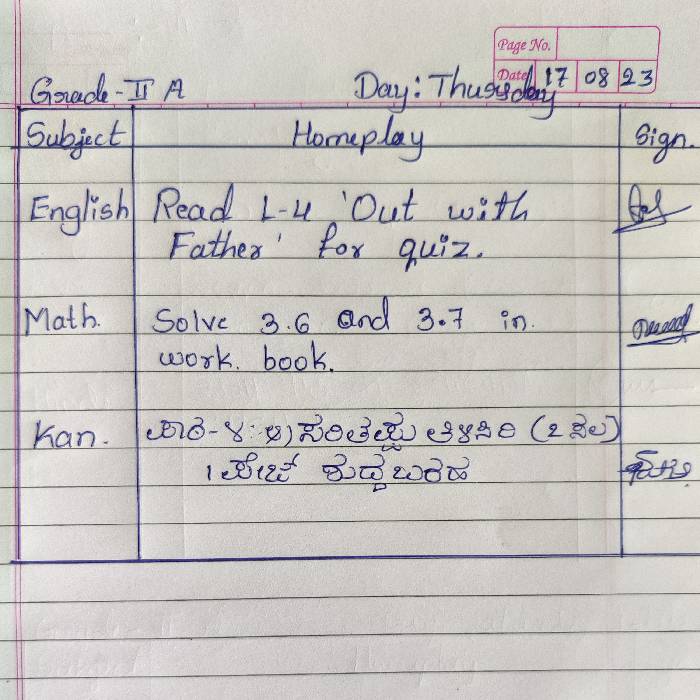 Page No.
Date 17 08 23
Grade - II A Day: Thursday
Subject Homeplay Sign.
English Read L-4 'Out with
Father' for quiz.
Math. Solve 3.6 and 3.7 in.
work. book.
Kan. ಪಾಠ-೪:- ಅ) ಸರಿತಪ್ಪು ತಿಳಿಸಿರಿ (2 ಸಲ)
1 ಪೇಜ್ ಶುದ್ಧಬರಹ